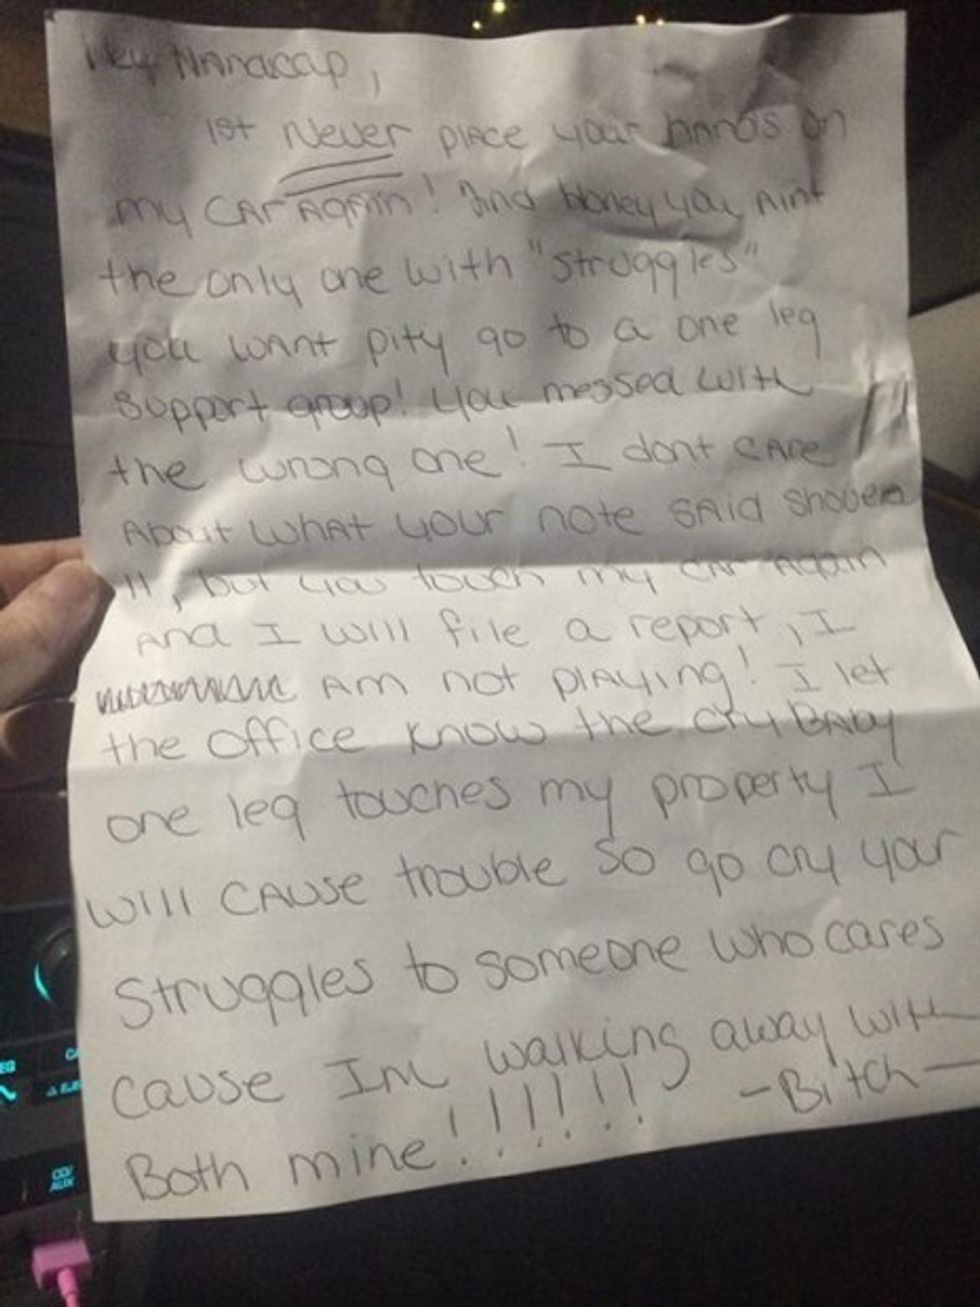 Hey Hanacap,
1st Never place your hands on
my car again! And honey you aint
the only one with "struggles"
you want pity go to a one leg
support group! You messed with
the wrong one! I dont care
About what your note said shove
it, but you touch my car again
and I will file a report, I
am not playing! I let
the office know the cry baby
one leg touches my property I
will cause trouble so go cry your
struggles to someone who cares
cause Im walking away with
Both mine!!!!!!
-Bitch-
EQ
CD/
AUX